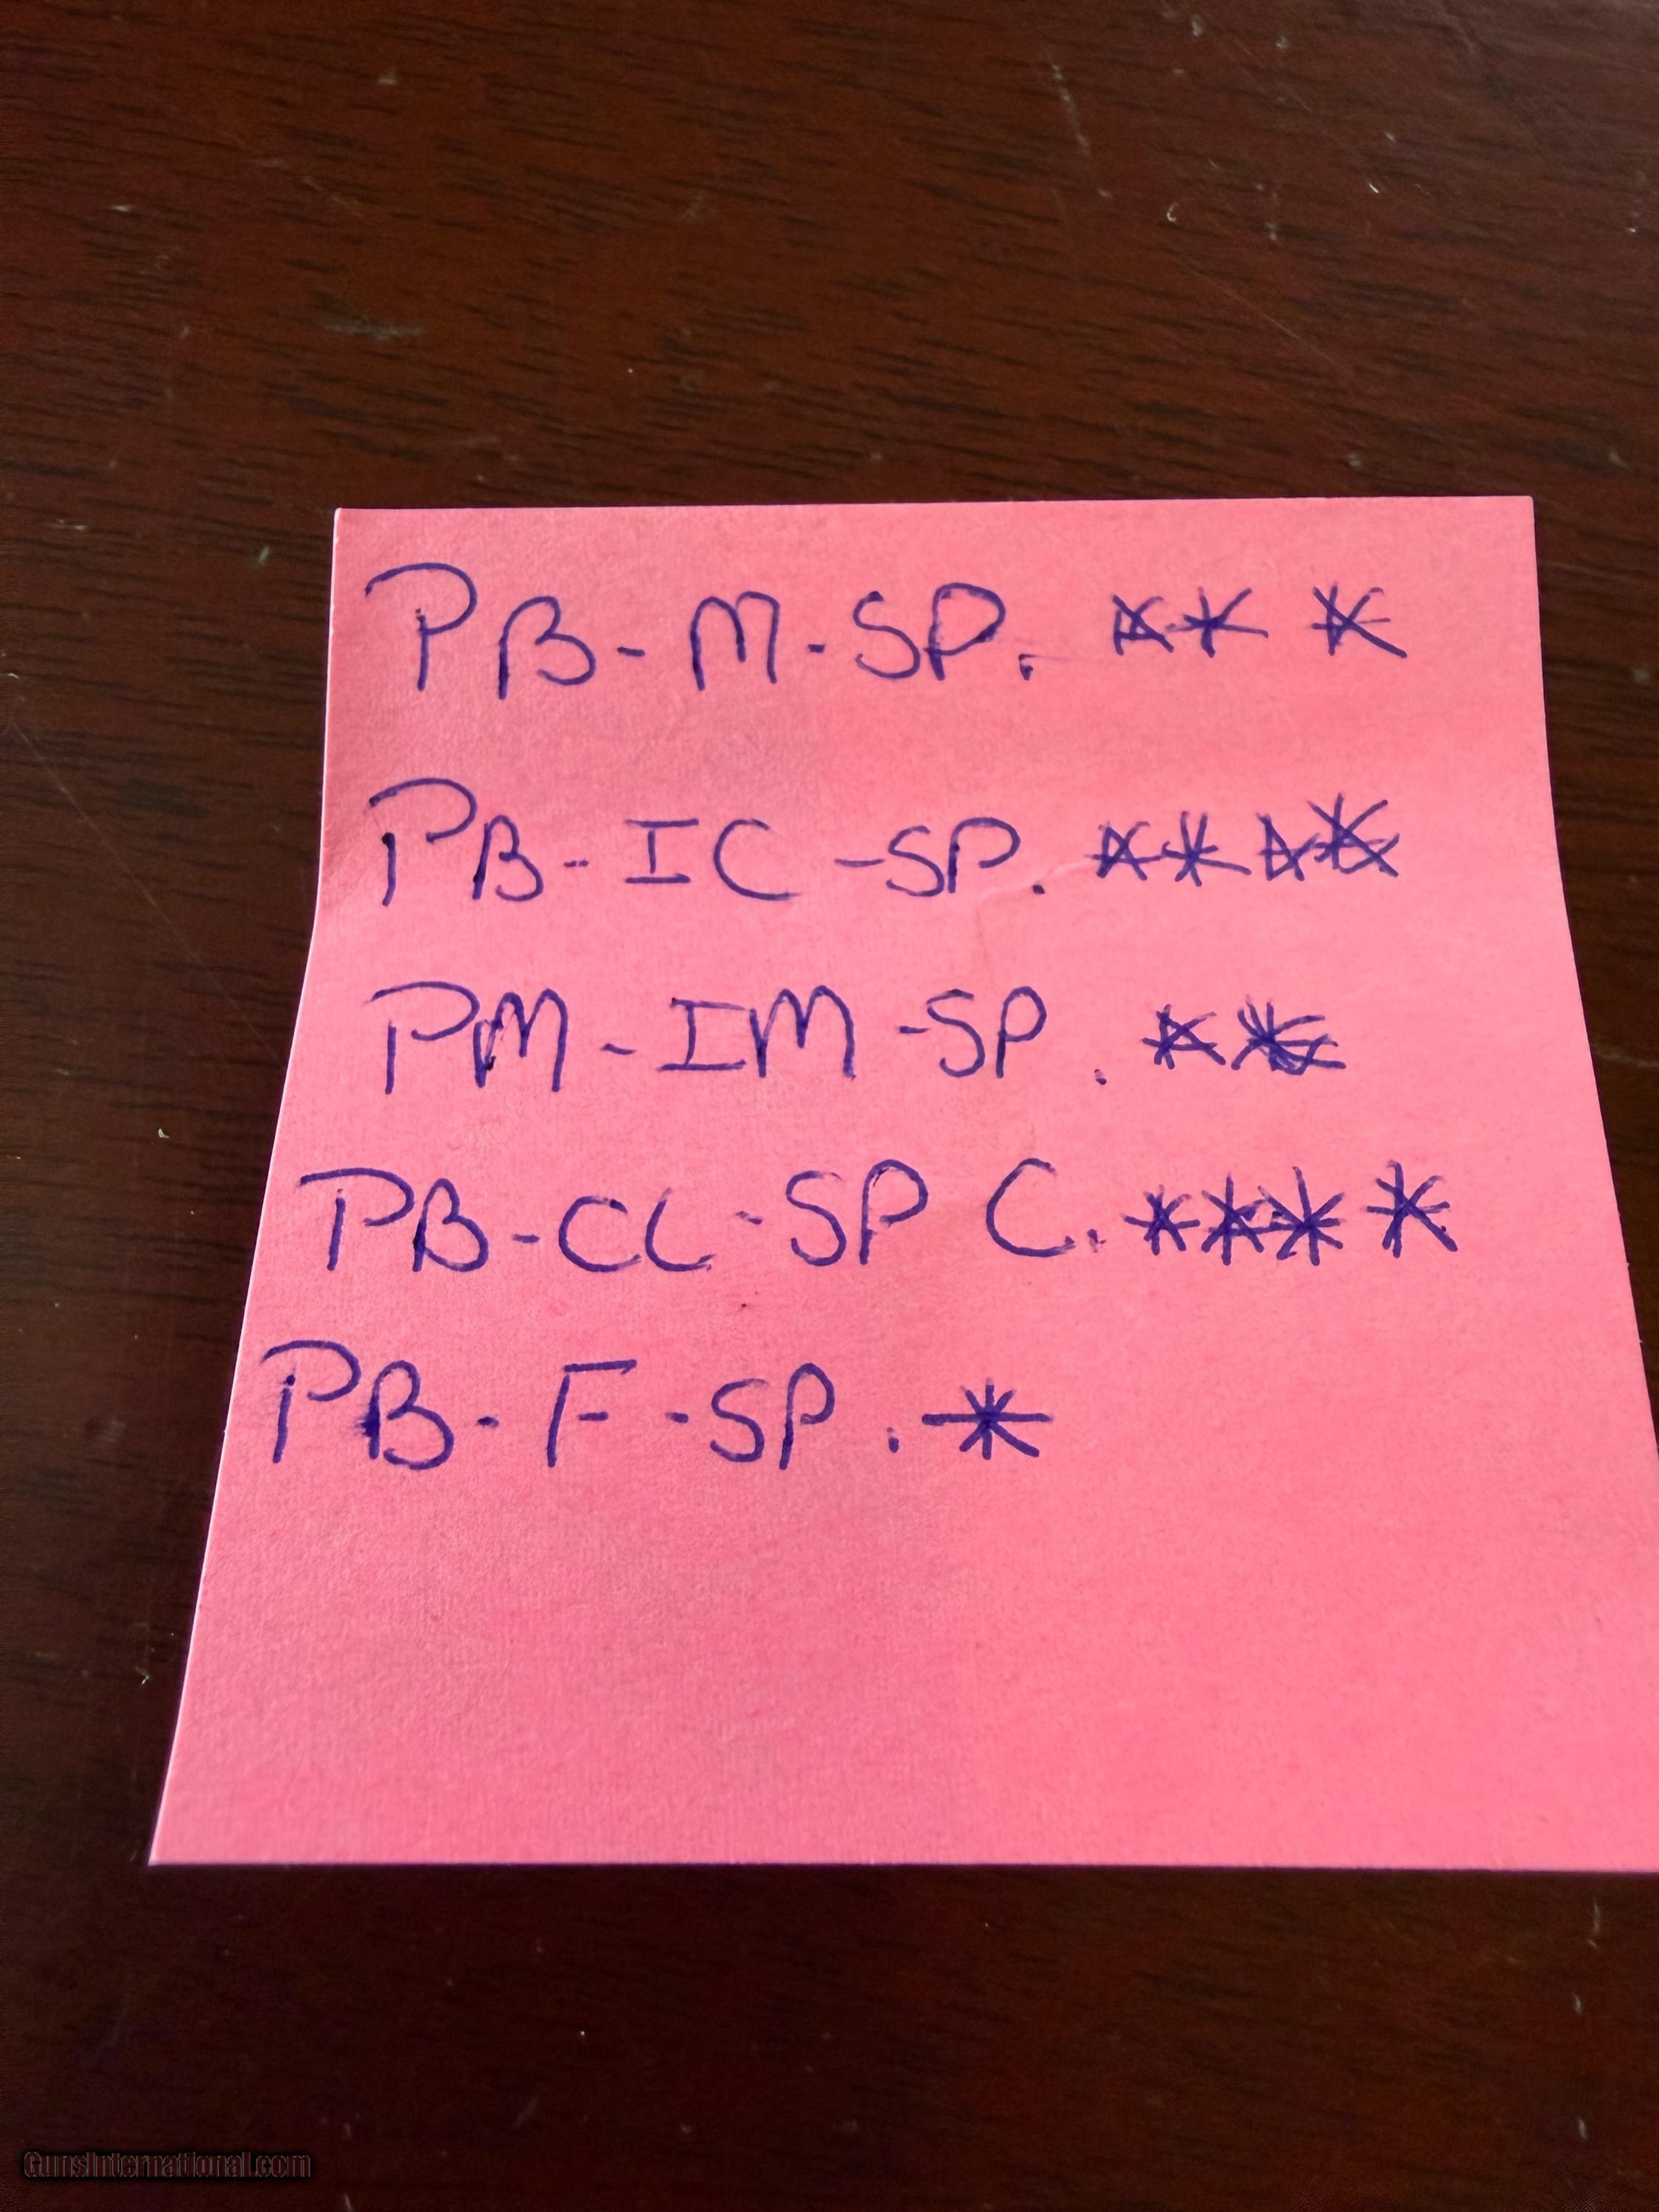 PB-M-SP. ***
PB-IC-SP. ****
PM-IM-SP. **
PB-CL-SP C. ****
PB-F-SP. *
GunsInternational.com